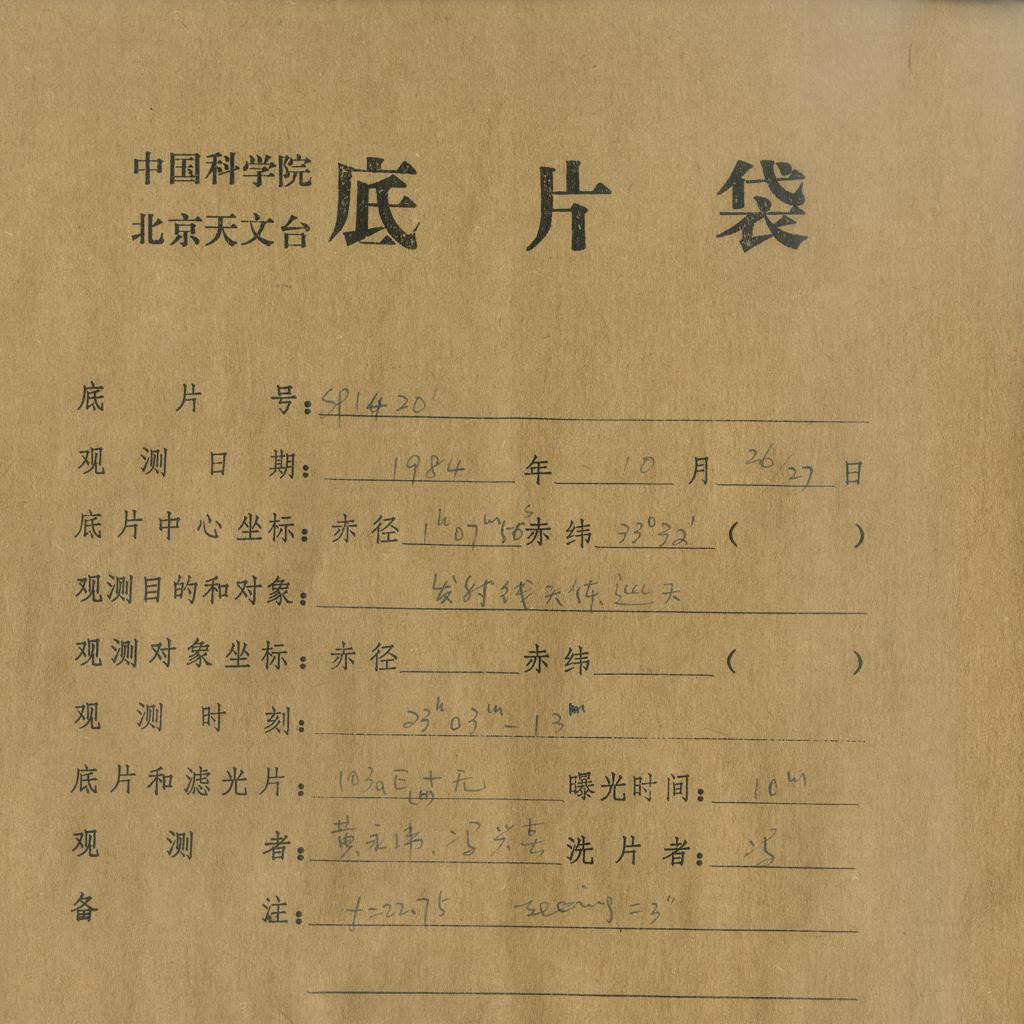 中国科学院
北京天文台 底片袋
底片号: SP1420
观测日期: 1984 年 10 月 26/27 日
底片中心坐标: 赤径 1ʰ07ᵐ56ˢ 赤纬 33°32′ ( )
观测目的和对象: 发射线天体巡天
观测对象坐标: 赤径 赤纬 ( )
观测时刻: 23ʰ03ᵐ-13ᵐ
底片和滤光片: 103aE + 无 曝光时间: 10ᵐ
观测者: 黄永伟、冯兴春 洗片者: 冯
备注: f=22.75 seeing=3″